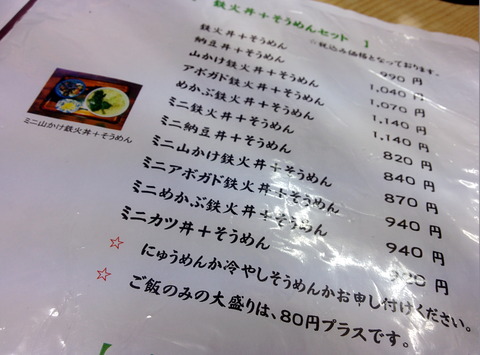 鉄火丼＋そうめんセット 】
☆税込み価格となっております。
鉄火丼＋そうめん 990 円
納豆丼＋そうめん 1,040 円
山かけ鉄火丼＋そうめん 1,070 円
アボガド鉄火丼＋そうめん 1,140 円
めかぶ鉄火丼＋そうめん 1,140 円
ミニ鉄火丼＋そうめん 820 円
ミニ納豆丼＋そうめん 840 円
ミニ山かけ鉄火丼＋そうめん 870 円
ミニアボガド鉄火丼＋そうめん 940 円
ミニめかぶ鉄火丼＋そうめん 940 円
ミニカツ丼＋そうめん 円
☆ にゅうめんか冷やしそうめんかお申し付けください。
☆ ご飯のみの大盛りは、80円プラスです。
ミニ山かけ鉄火丼＋そうめん
【